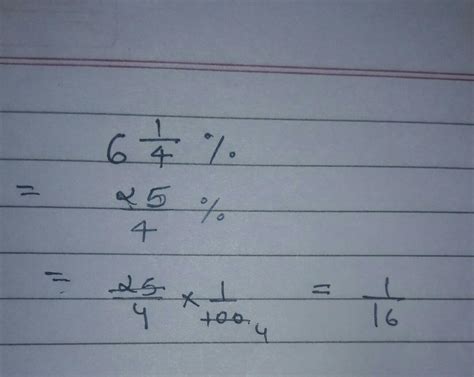 6 1/4 %
= 25/4 %
= 25/4 × 1/100 4 = 1/16